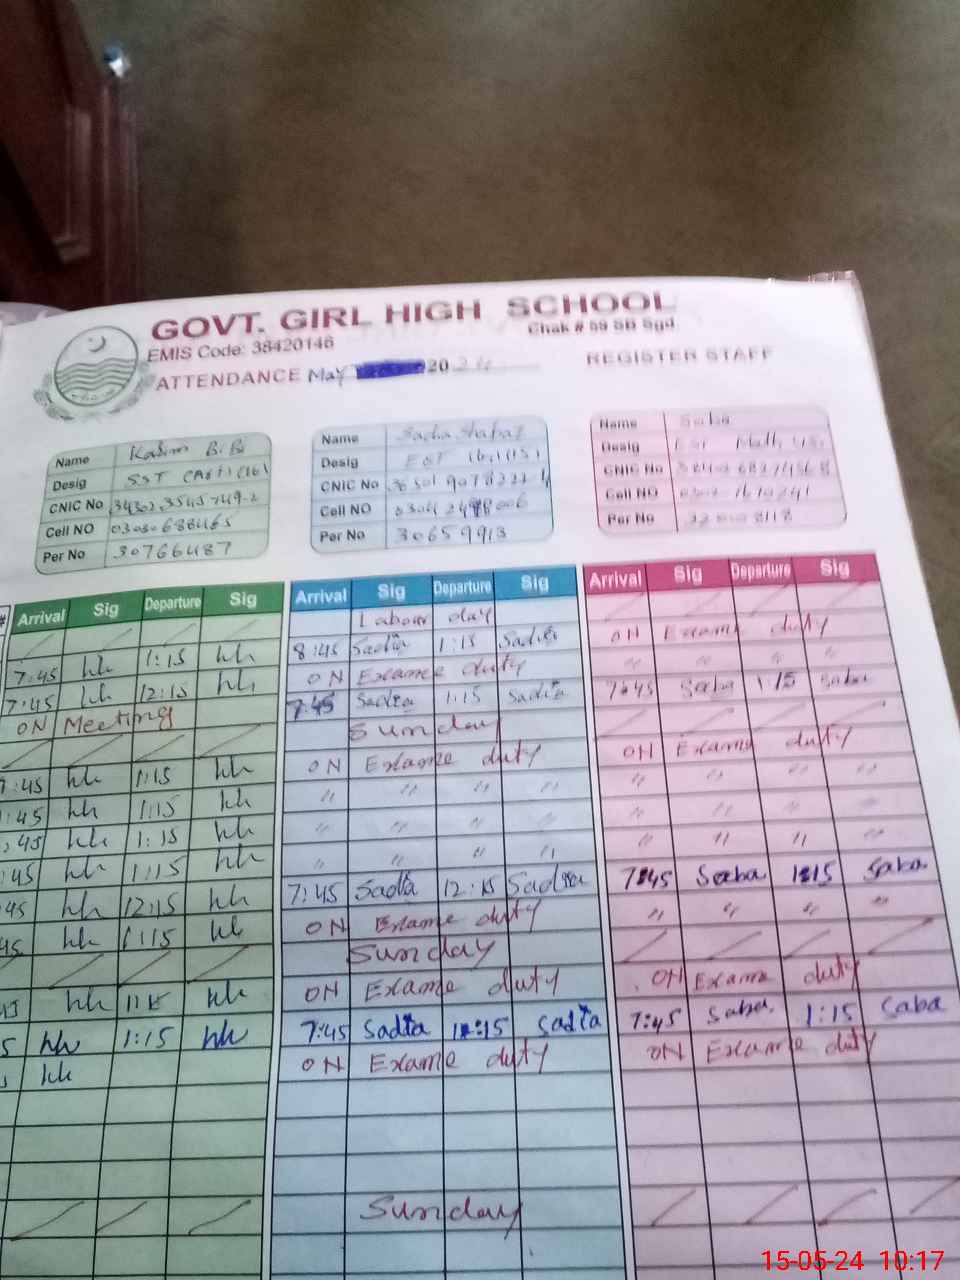 GOVT. GIRL HIGH SCHOOL
Chak # 59 SB Sgd
EMIS Code: 38420146
ATTENDANCE May 2024 REGISTER STAFF
Name B.B
Desig SST
CNIC No
Cell NO
Per No 30766487
Name Sadia
Desig EST
CNIC No
Cell NO
Per No 30659913
Name Saba
Desig EST Math
CNIC No
Cell NO
Per No
Arrival Sig Departure Sig
7:45 hh 1:15 hh
7:45 hh 12:15 hh
ON Meeting
7:45 hh 1:15 hh
:45 hh 1:15 hh
:45 hh 1:15 hh
:45 hh 1:15 hh
45 hh 12:15 hh
45 hh 1:15 hh
hh hh
5 hh 1:15 hh
hh
Arrival Sig Departure Sig
Labour day
8:45 Sadia 1:15 Sadia
ON Exame duty
7:45 Sadia 1:15 Sadia
Sunday
ON Exame duty
" " " "
" " " "
" " " "
7:45 Sadia 12:15 Sadia
ON Exame duty
Sunday
ON Exame duty
7:45 Sadia :15 Sadia
ON Exame duty
Sunday
Arrival Sig Departure Sig
ON Exame duty
" " "
7:45 Saba 1:15 Saba
ON Exame duty
" " " "
" " " "
" " " "
7:45 Saba 1:15 Saba
" " " "
ON Exame duty
7:45 Saba. 1:15 Saba
ON Exame duty
15-05-24 10:17